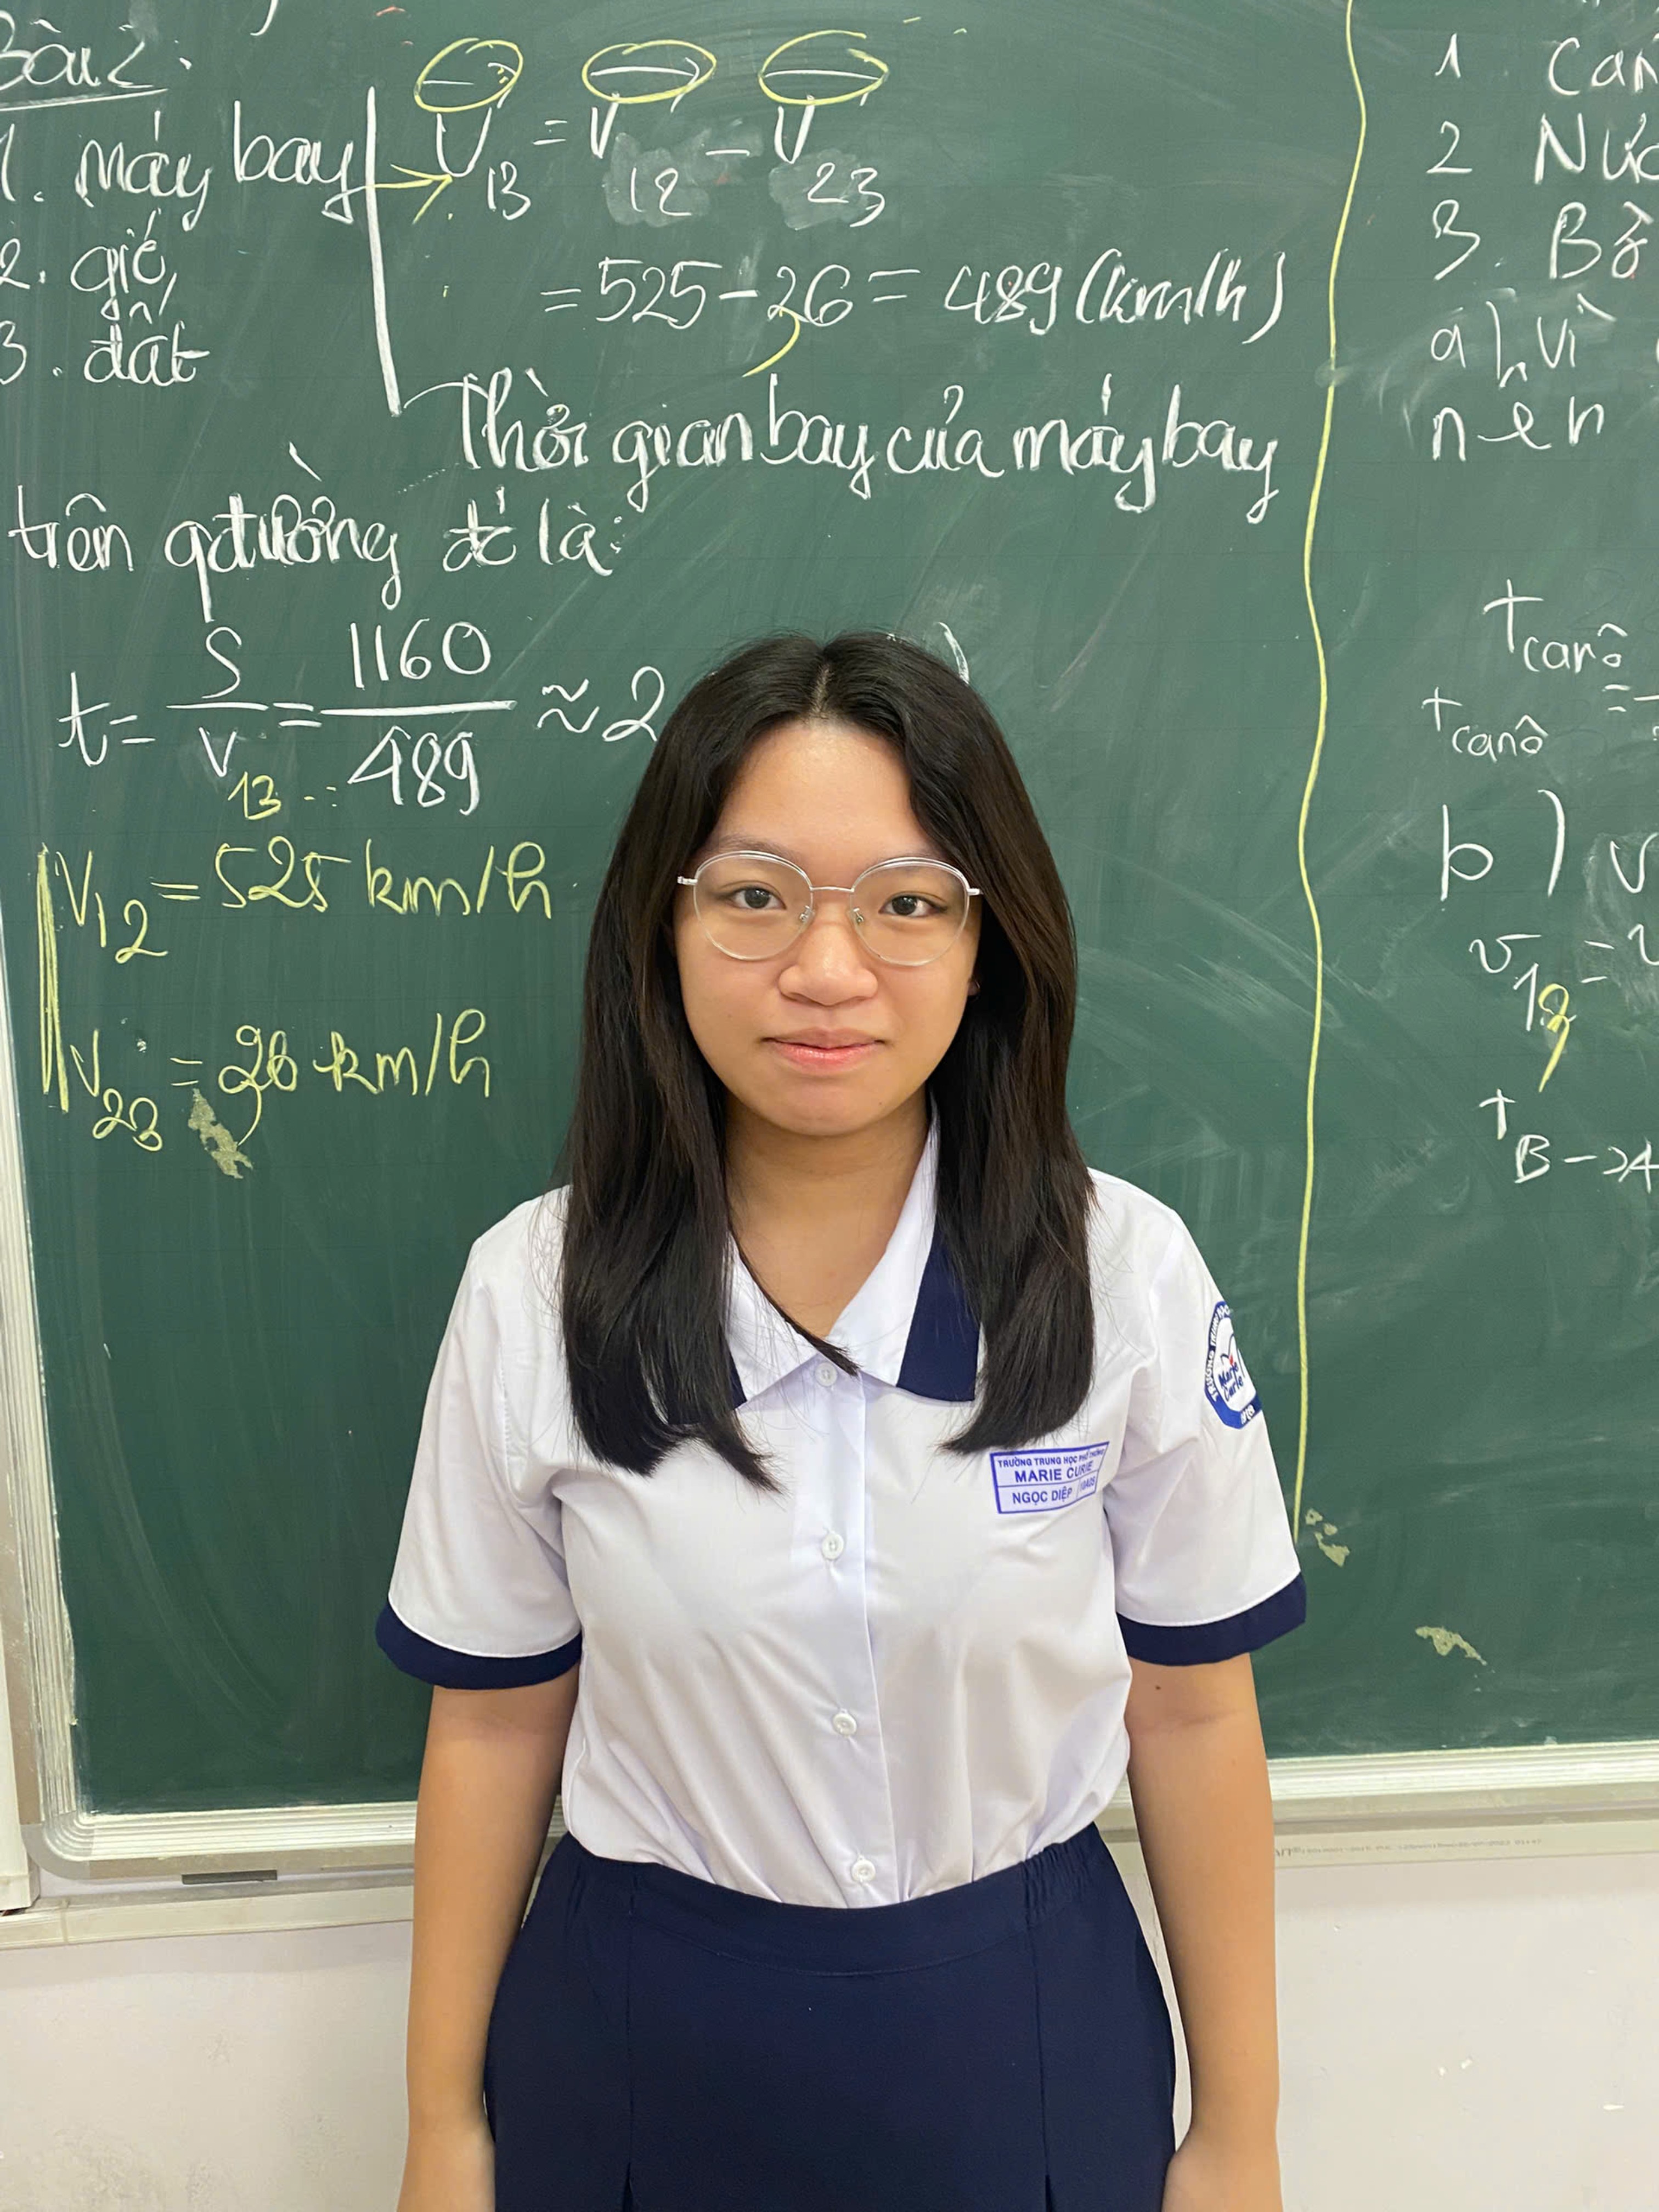 Bài 2:
1. máy bay
2. gió
3. đất
V13 = V12 - V23
= 525 - 36 = 489 (km/h)
Thời gian bay của máy bay
trên qđường đó là:
t = S/V13 = 1160/489 ≈ 2
V12 = 525 km/h
V23 = 36 km/h
1
2
3. Bờ
a) vì
nên
tcanô =
tcanô
b) v
v13 =
tB→A
TRƯỜNG TRUNG HỌC PHỔ THÔNG
MARIE CURIE
NGỌC DIỆP
Marie
Curie